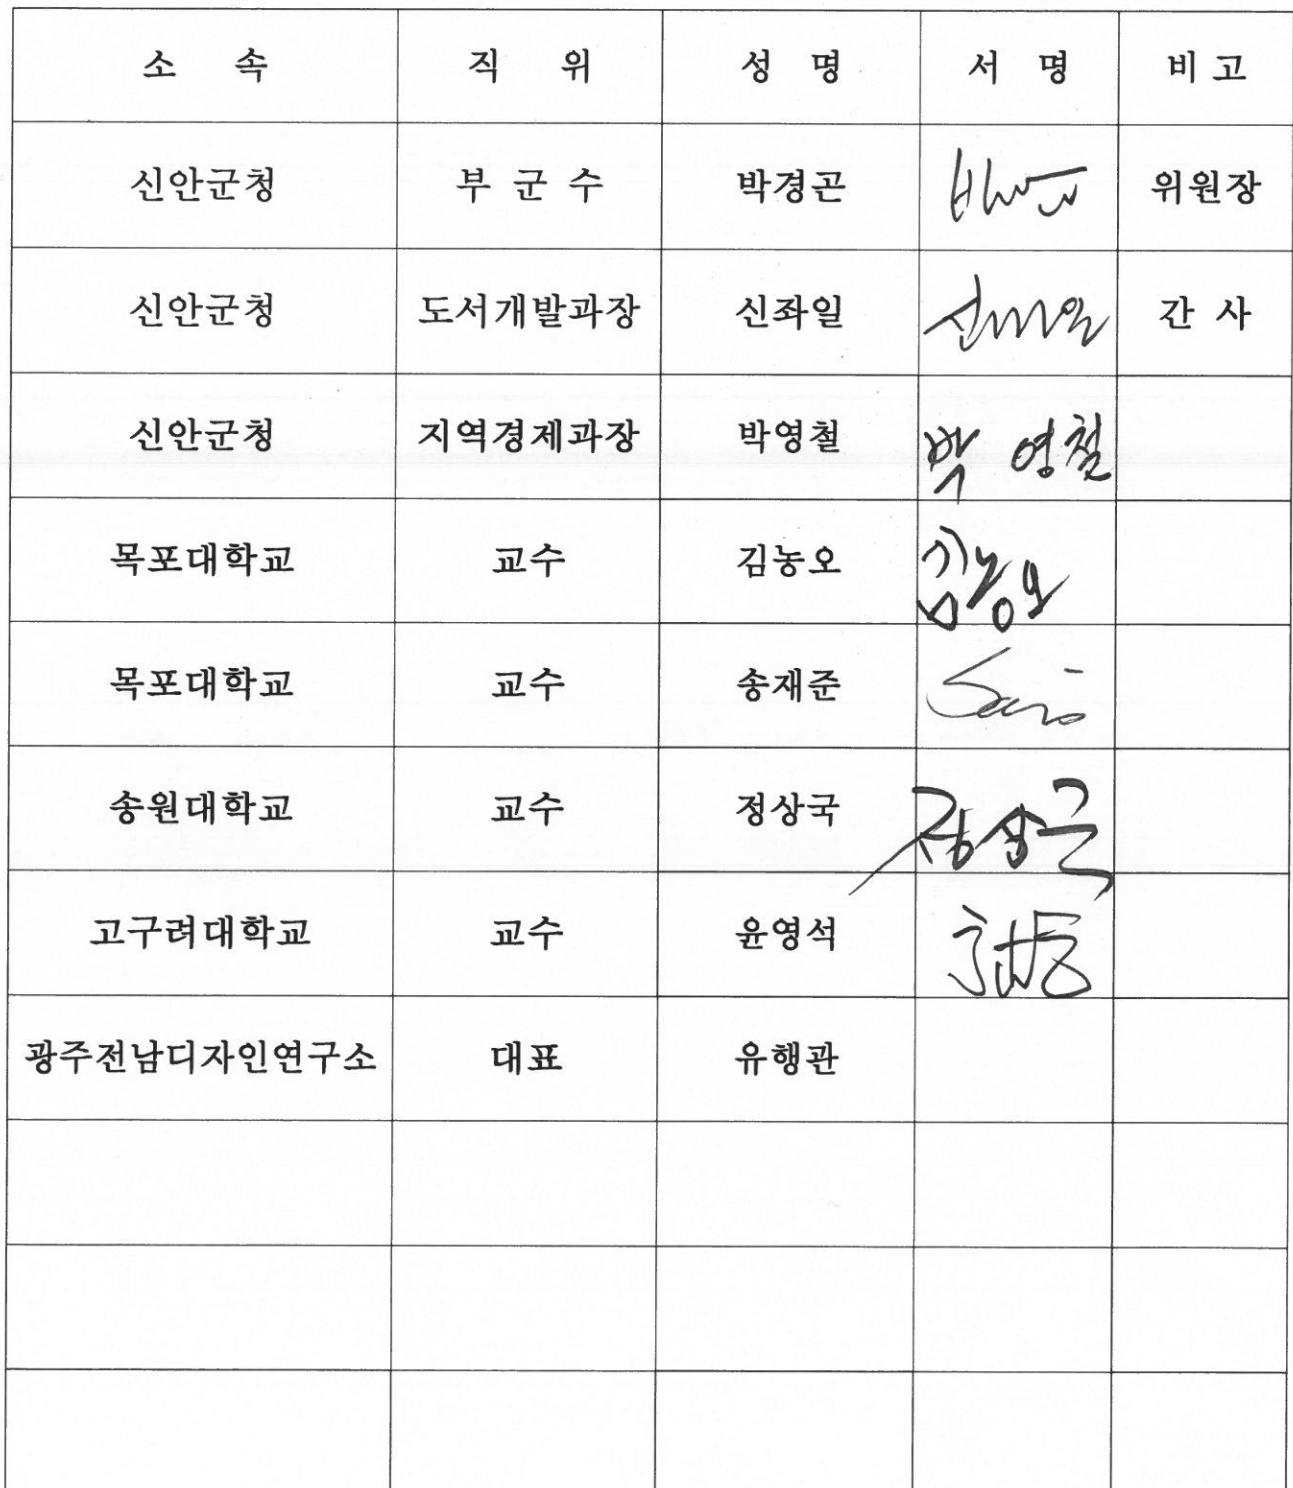 소 속 직 위 성 명 서 명 비 고
신안군청 부 군 수 박경곤 위원장
신안군청 도서개발과장 신좌일 간 사
신안군청 지역경제과장 박영철 박 영철
목포대학교 교수 김농오 김농오
목포대학교 교수 송재준
송원대학교 교수 정상국 정상국
고구려대학교 교수 윤영석
광주전남디자인연구소 대표 유행관